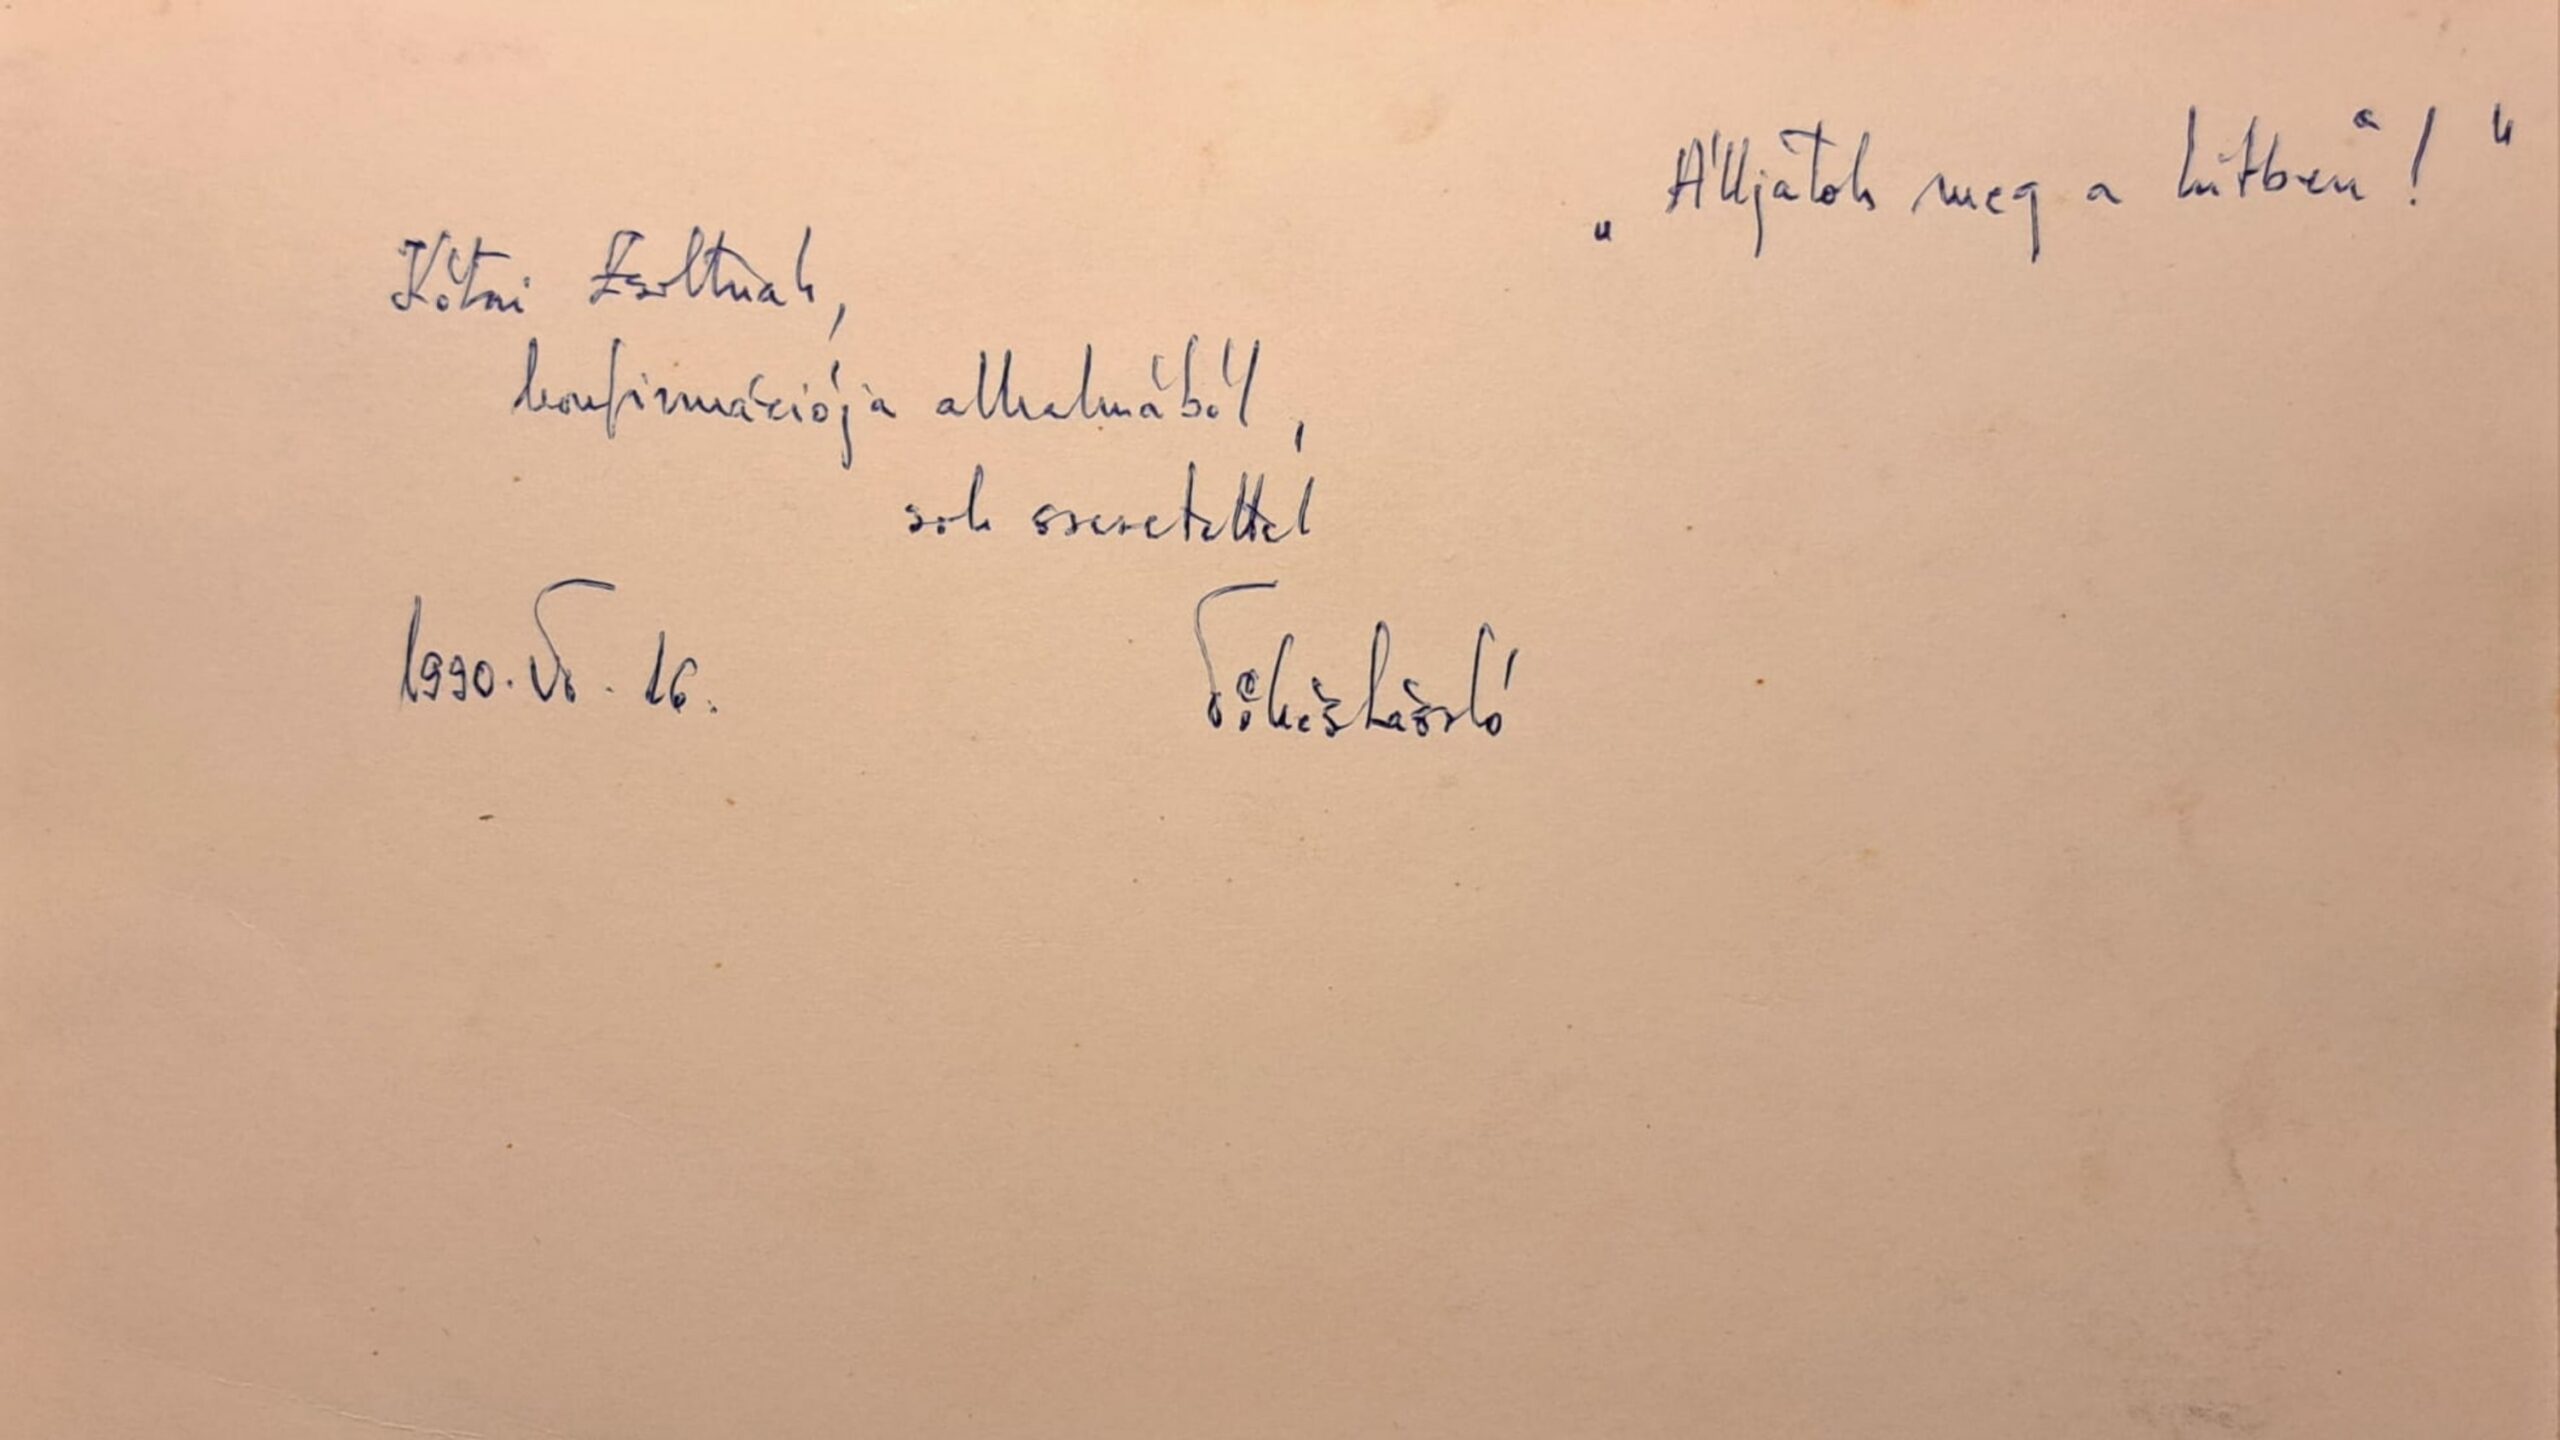 „Álljatok meg a hitben!"
Kótai Zsoltnak,
konfirmációja alkalmából,
sok szeretettel
1990. VI. 16.
Tőkés László